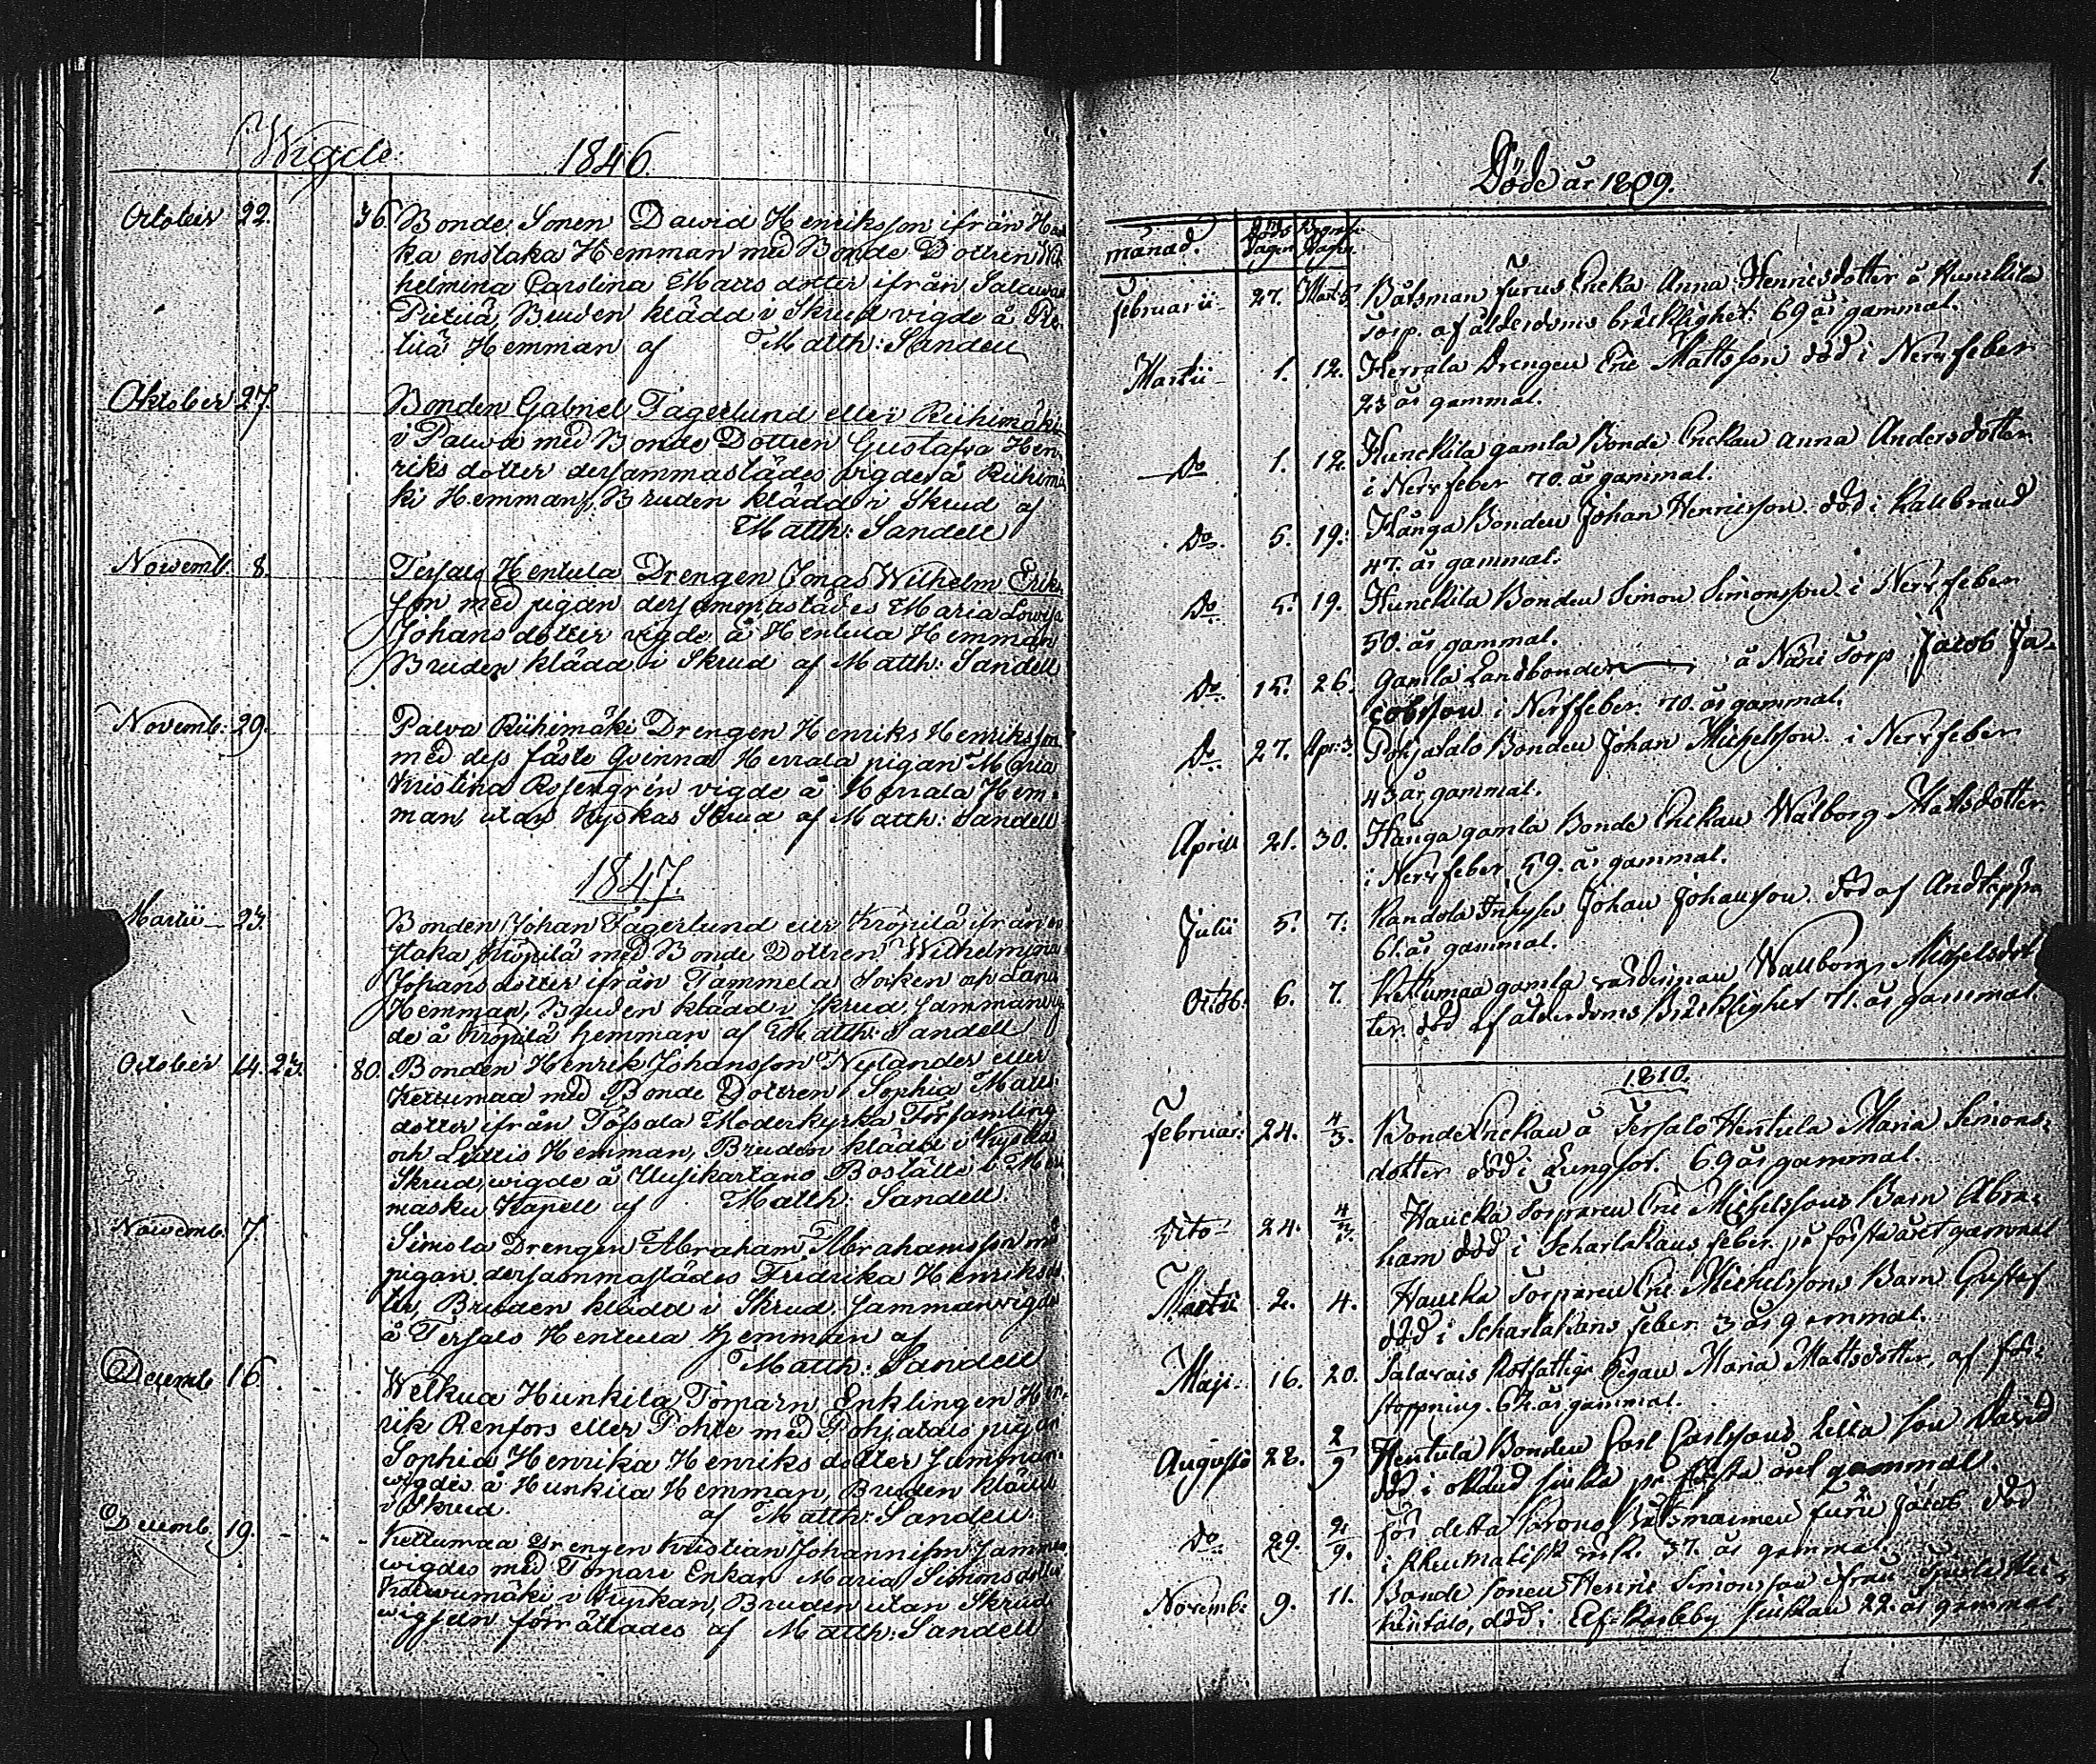 Wigde. 1846.
Octobris 22. 36. Bonde Sonen David Henriksson ifrån Hau
ka enstaka Hemman med Bonde Dottren Wil
helmina Carolina Matts dotter ifrån Salawais
Pietilä Bruden klädd i Skrud vigde å Pie
tilä Hemman af Matth: Sandell
Oktober 27. Bonden Gabriel Fagerlund eller Riihimäki
i Palva med Bonde Dottren Gustafva Hen
riks dotter dersammastädes vigde å Riihimä
ki Hemman, Bruden klädd i Skrud af
Matth: Sandell
Novemb. 8. Tersalo Hentula Drengen Jonas Wilhelm Erik
sson med pigan dersammastädes Maria Lowisa
Johans dotter vigde å Hentula Hemman
Bruden klädd i Skrud af Matth: Sandell
Novemb: 29. Palva Riihimäki Drengen Henriks Henriksson
med dess fäste Qvinna Herrala pigan Maria
Kristina Rosengrén vigde å Herrala Hem-
man utan Kyrkas Skrud af Matth: Sandell
1847.
Martii 23. Bonden Johan Fagerlund eller Kröpilä ifrån en
staka Kröpilä med Bonde Dottren Wilhelmina
Johans dotter ifrån Tammela Socken och
Hemman, Bruden klädd i Skrud sammanvig
de å Kröpilä hemman af Matth: Sandell
October 14. 23. 80. Bonden Henrik Johansson Nylander eller
Kettumaa med Bonde Dottren Sophia Matts
dotter ifrån Töfsala Moderkyrka Församling
och Hemman, Bruden klädd i Kyrkas
Skrud, wigde å Uusikartano Boställe i Me
masku Kapell af Matth: Sandell
Novemb. 7. Simola Drengen Abraham Abrahamsson med
pigan dersammastädes Fredrika Henriks dot
ter, Bruden klädd i Skrud sammanvigde
å Tersalo Hentula hemman af
Matth: Sandell
Decemb 16. Welkua Hunkila Torparn Enklingen Hen
rik Renfors eller Pohte med Pohjatalo pigan
Sophia Henrika Henriks dotter Samman
wigdes å Hunkila Hemman, Bruden klädd
i Skrud. af Matth: Sandell.
Decemb. 19. Kettumaa drengen Kristian Johannisson samman
wigdes med Torpare Enkan Maria Simonsdotter
i Kyrkan, Bruden utan Skrud
wigseln förrättades af Matth: Sandell
Döde år 1809. 1.
månad. Döds dagen Begrafn: dagen
Februarii 27. Mart: 5. Båtsman Furus Encka Anna Henricsdotter å Hunckila
Torp. af ålderdoms bräcklighet. 69 år gammal.
Martii 1. 12. Herrala Drengen Eric Mattsson död i Nervfeber
23 år gammal.
Do 1. 12. Hunckila gamla Bonde Enckan Anna Andersdotter
i Nervfeber 70 år gammal.
Do 5. 19. Hånga Bonden Johan Henricsson död i Kallbrand
47 år gammal.
Do 5. 19. Hunckila Bonden Simon Simonsson i Nervfeber
50 år gammal.
Do 15. 26. Gamla Landbonden å Näse Torp Jacob Ja-
cobsson i Nervfeber 70 år gammal.
Do 27. Apr: 3. Pohjatalo Bonden Johan Michelsson i Nervfeber
43 år gammal.
April 21. 30. Hånga gamla Bonde Enckan Walborg Mattsdotter
i Nervfeber 59 år gammal.
Julii 5. 7. Kandola Inhyses Johan Johansson död af Andtäppa
61 år gammal.
Octob: 6. 7. Kettumaa gamla Wallborg Michelsdot
ter död af ålderdoms Bräcklighet 71 år gammal.
1810.
Februar: 24. 4/3. Bonde Enckan å Tersalo Hentula Maria Simons-
dotter död i Lungsot. 69 år gammal.
Dito 24. 4/3. Haucka Torparen Eric Michelssons Barn Abra-
ham död i Scharlakans feber på första året gammal
Martii 2. 4. Haucka Torparen Eric Michelssons Barn Gustaf
död i Scharlakans feber 3 år gammal.
Maji 16. 20. Salavais Rotfattige Pigan Maria Mattsdotter, af för-
stoppning. 62 år gammal.
Augusti 28. 2/9 Hentula Bonden Carl Carlssons Lilla son David
död i okänd siuka på första året gammal.
Do 29. 2/9. för detta Krono Båtsmannen Furu Jacob död
i Rheumatisk siuk. 37 år gammal.
Novemb: 9. 11. Bonde sonen Henric Simonsson ifrån
död i siukan 22 år gammal.